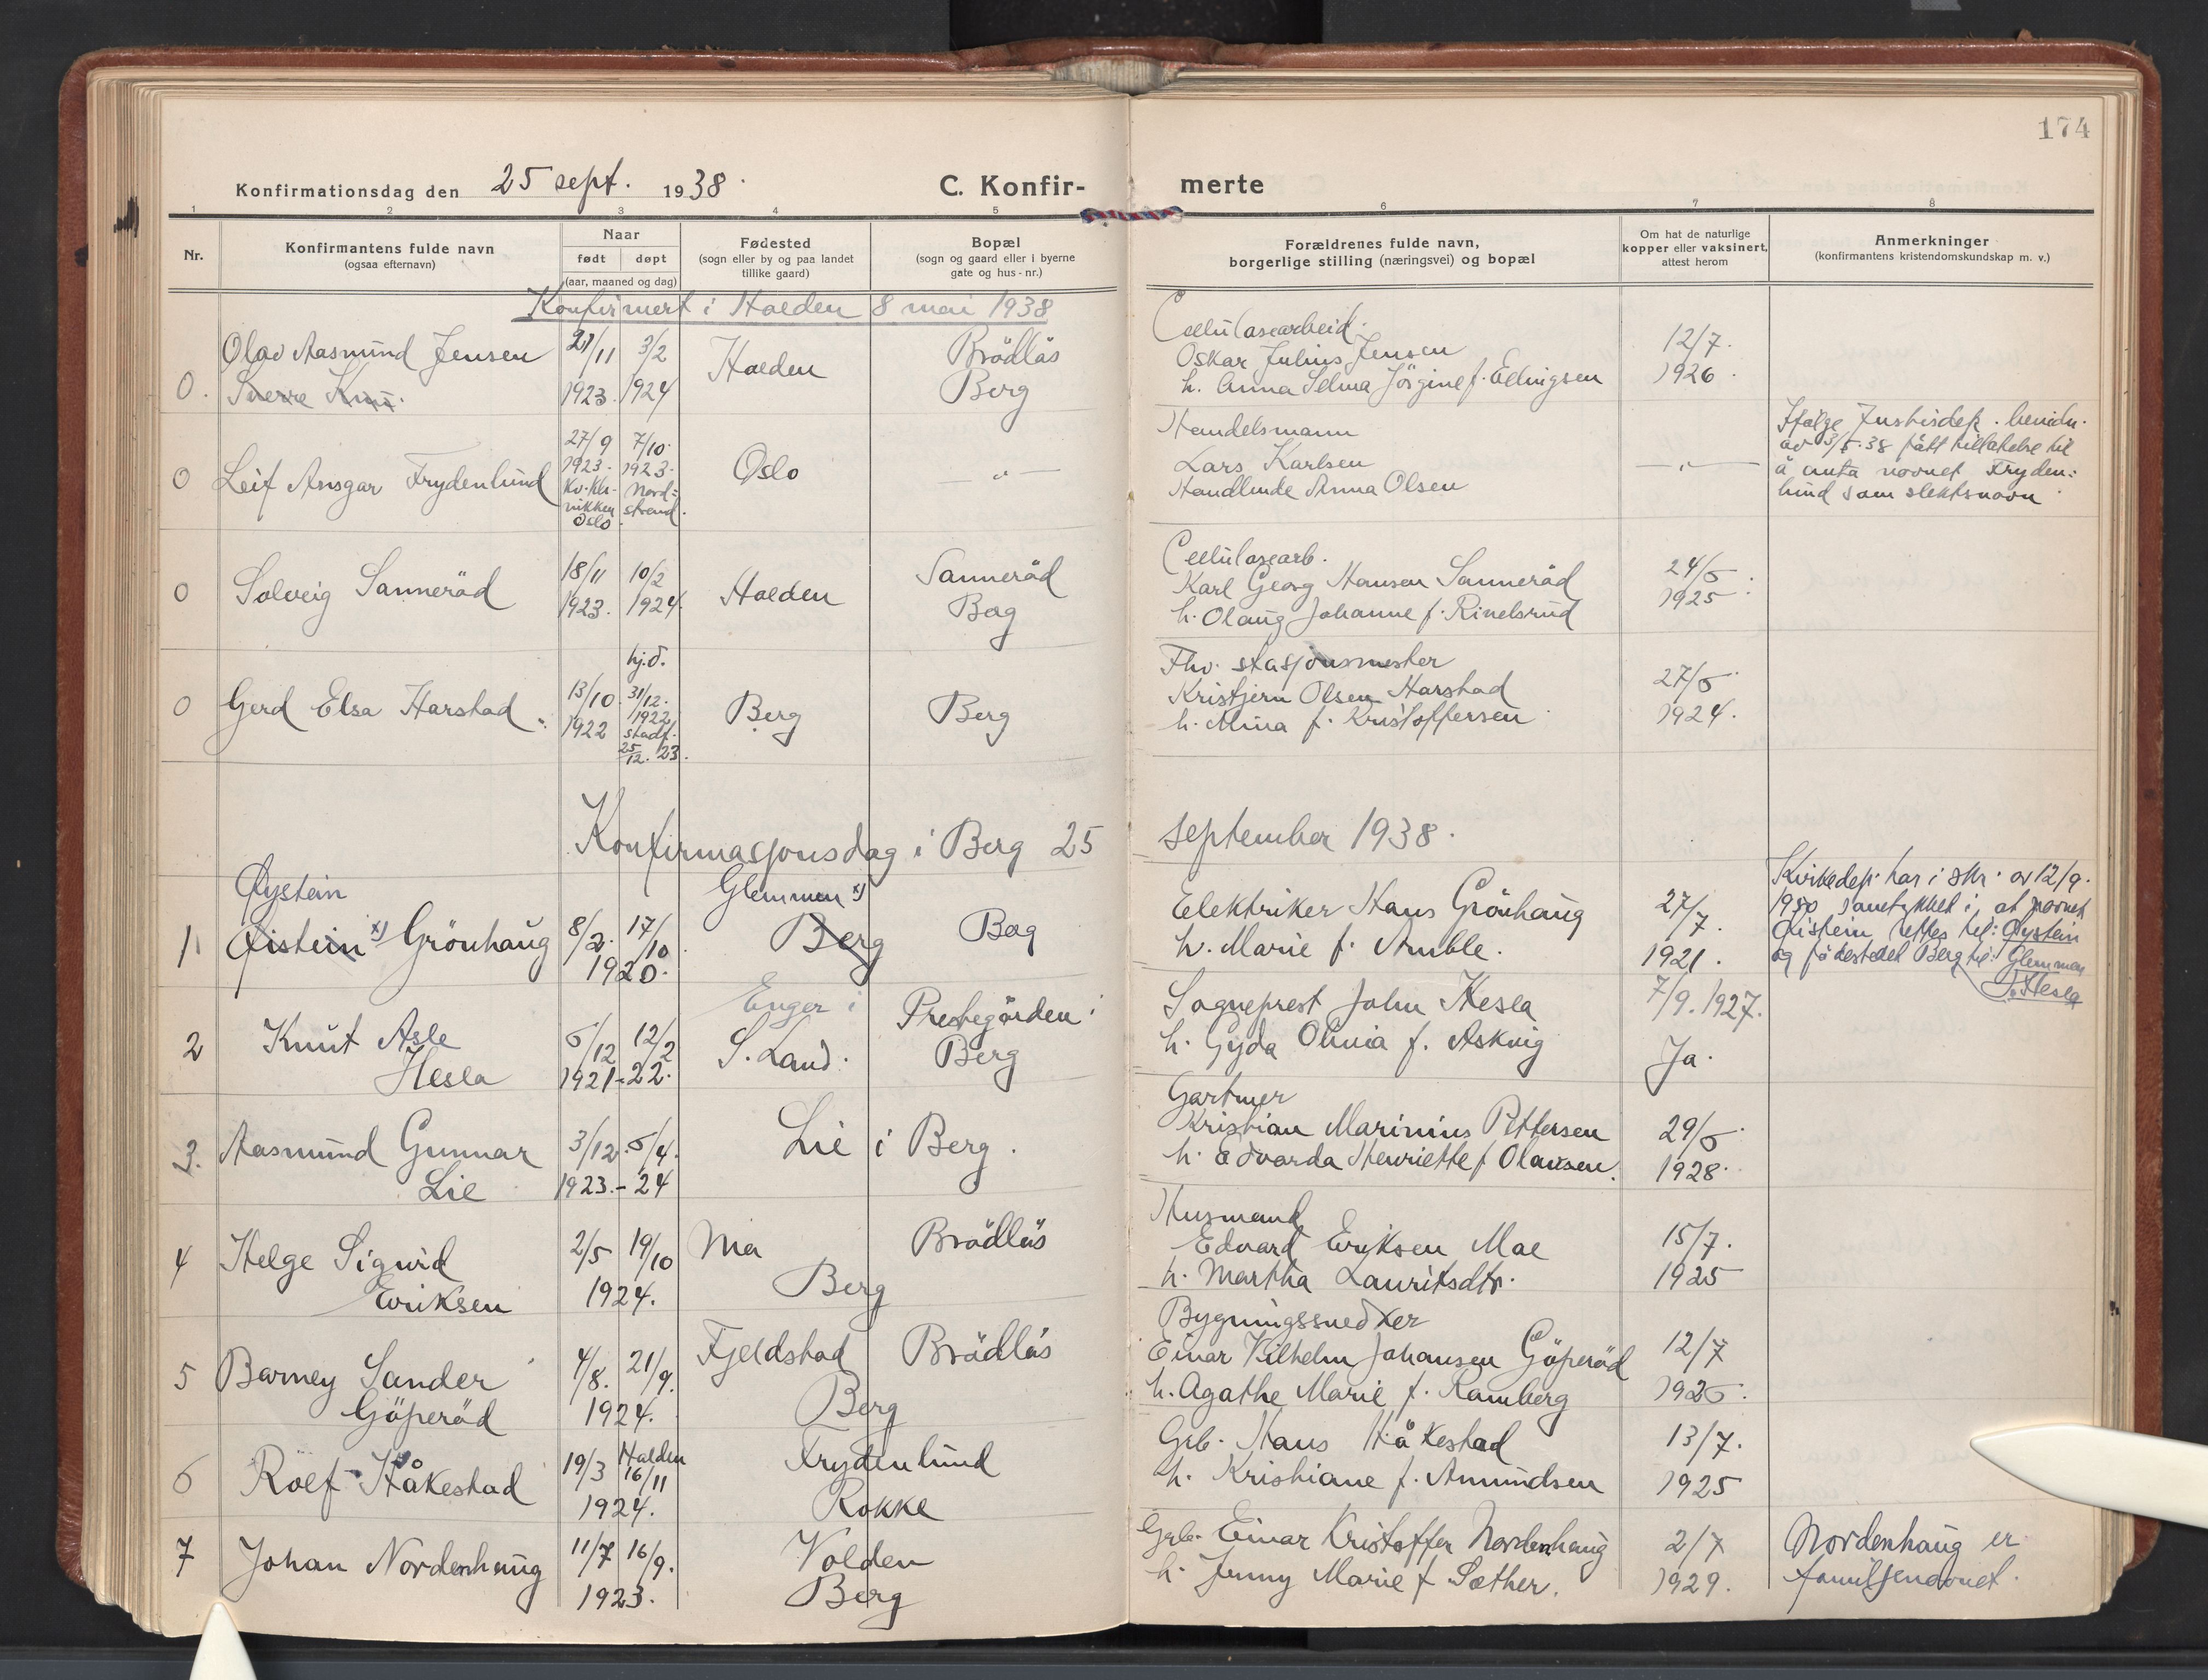 174
Konfirmationsdag den 25 sept. 1938.
C. Konfir-merte
1 2 3 4 5 6 7 8
Nr.
Konfirmantens fulde navn
(ogsaa efternavn)
Naar
født døpt
(aar, maaned og dag)
Fødested
(sogn eller by og paa landet
tillike gaard)
Bopæl
(sogn og gaard eller i byerne
gate og hus-nr.)
Forældrenes fulde navn,
borgerlige stilling (næringsvei) og bopæl
Om hat de naturlige
kopper eller vaksinert,
attest herom
Anmerkninger
(konfirmantens kristendomskundskap m. v.)
Konfirmert i Halden 8 mai 1938
0.
Olav Aasmund Jensen
Sverre
21/11 3/2
1923. 1924
Halden
Brödlös
Berg
Cellulosearbeid.
Oskar Julius Jensen
h. Anna Selma Jörgine f. Ellingsen
12/7.
1926.
0
Leif Ansgar Frydenlund
27/9 7/10.
1923. 1923.
Kv. Kli- Nord=
nikken strand.
Oslo.
Oslo
— " —
Handelsmann
Lars Karlsen
Handlende Anna Olsen
— " —
Ifølge Justisdep. bevidn.
av 3/5.38 fått tillatelse til
å anta navnet Fryden:
lund som slektsnavn.
0
Solveig Sanneröd
18/11 10/2
1923. 1924.
Halden
Sanneröd
Berg
Cellulosearb.
Karl Georg Hansen Sanneröd
h. Olaug Johanne f. Rinelsrud
24/5.
1925
0
Gerd Elsa Harstad
hj.d.
13/10. 31/12.
1922 1922
stadf.
25/12. 23.
Berg
Berg
Fhv. stasjonsmester
Kristjern Olsen Harstad
h. Mina f. Kristoffersen
27/5.
1924.
Konfirmasjonsdag i Berg 25 september 1938.
1
Øystein
Øistein x) Grönhaug
8/2. 17/10.
1920.
Glemmen x)
Berg
Berg
Elektriker Hans Grönhaug
h. Marie f. Amble.
27/7.
1921.
Kirkedep. har i skr. av 12/9.
1950 samtykket i at navnet
Øistein rettes til: Øystein
og födestedet Berg til: Glemmen
J. Hesla
2
Knut Asle
Hesla
5/12 12/2
1921-22.
Enger i
S. Land.
Prestegården i
Berg
Sogneprest John Hesla
h. Gyda Olivia f. Askvig
7/9.1927.
Ja.
3.
Aasmund Gunnar
Lie
3/12. 5/4.
1923.-24
Lie i Berg.
Gartner
Kristian Marinius Pettersen
h. Edvarda Henriette f Olaussen.
29/5.
1928.
4
Helge Sigurd
Eriksen
2/5 19/10
1924.
Mæ
Brödlös
Berg
Husmand
Edvard Eriksen Mæ
h. Martha Lauritsdtr.
15/7.
1925
5
Barney Sander
Göperöd
4/8. 21/9.
1924.
Fjeldstad
Brödlös
Berg
Bygningssnedker
Einar Vilhelm Johansen Göperöd
h. Agathe Marie f. Ramberg
12/7
1925.
6
Rolf Håkestad
Halden
19/3 16/11
1924.
Frydenlund
Rokke
Grb. Hans Håkestad
h. Kristiane f. Amundsen
13/7.
1925
7
Johan Nordenhaug
11/7 16/9.
1923.
Volden
Berg
Grb. Einar Kristoffer Nordenhaug
h. Jenny Marie f Sæther.
2/7
1929.
Nordenhaug er
familjenavnet.